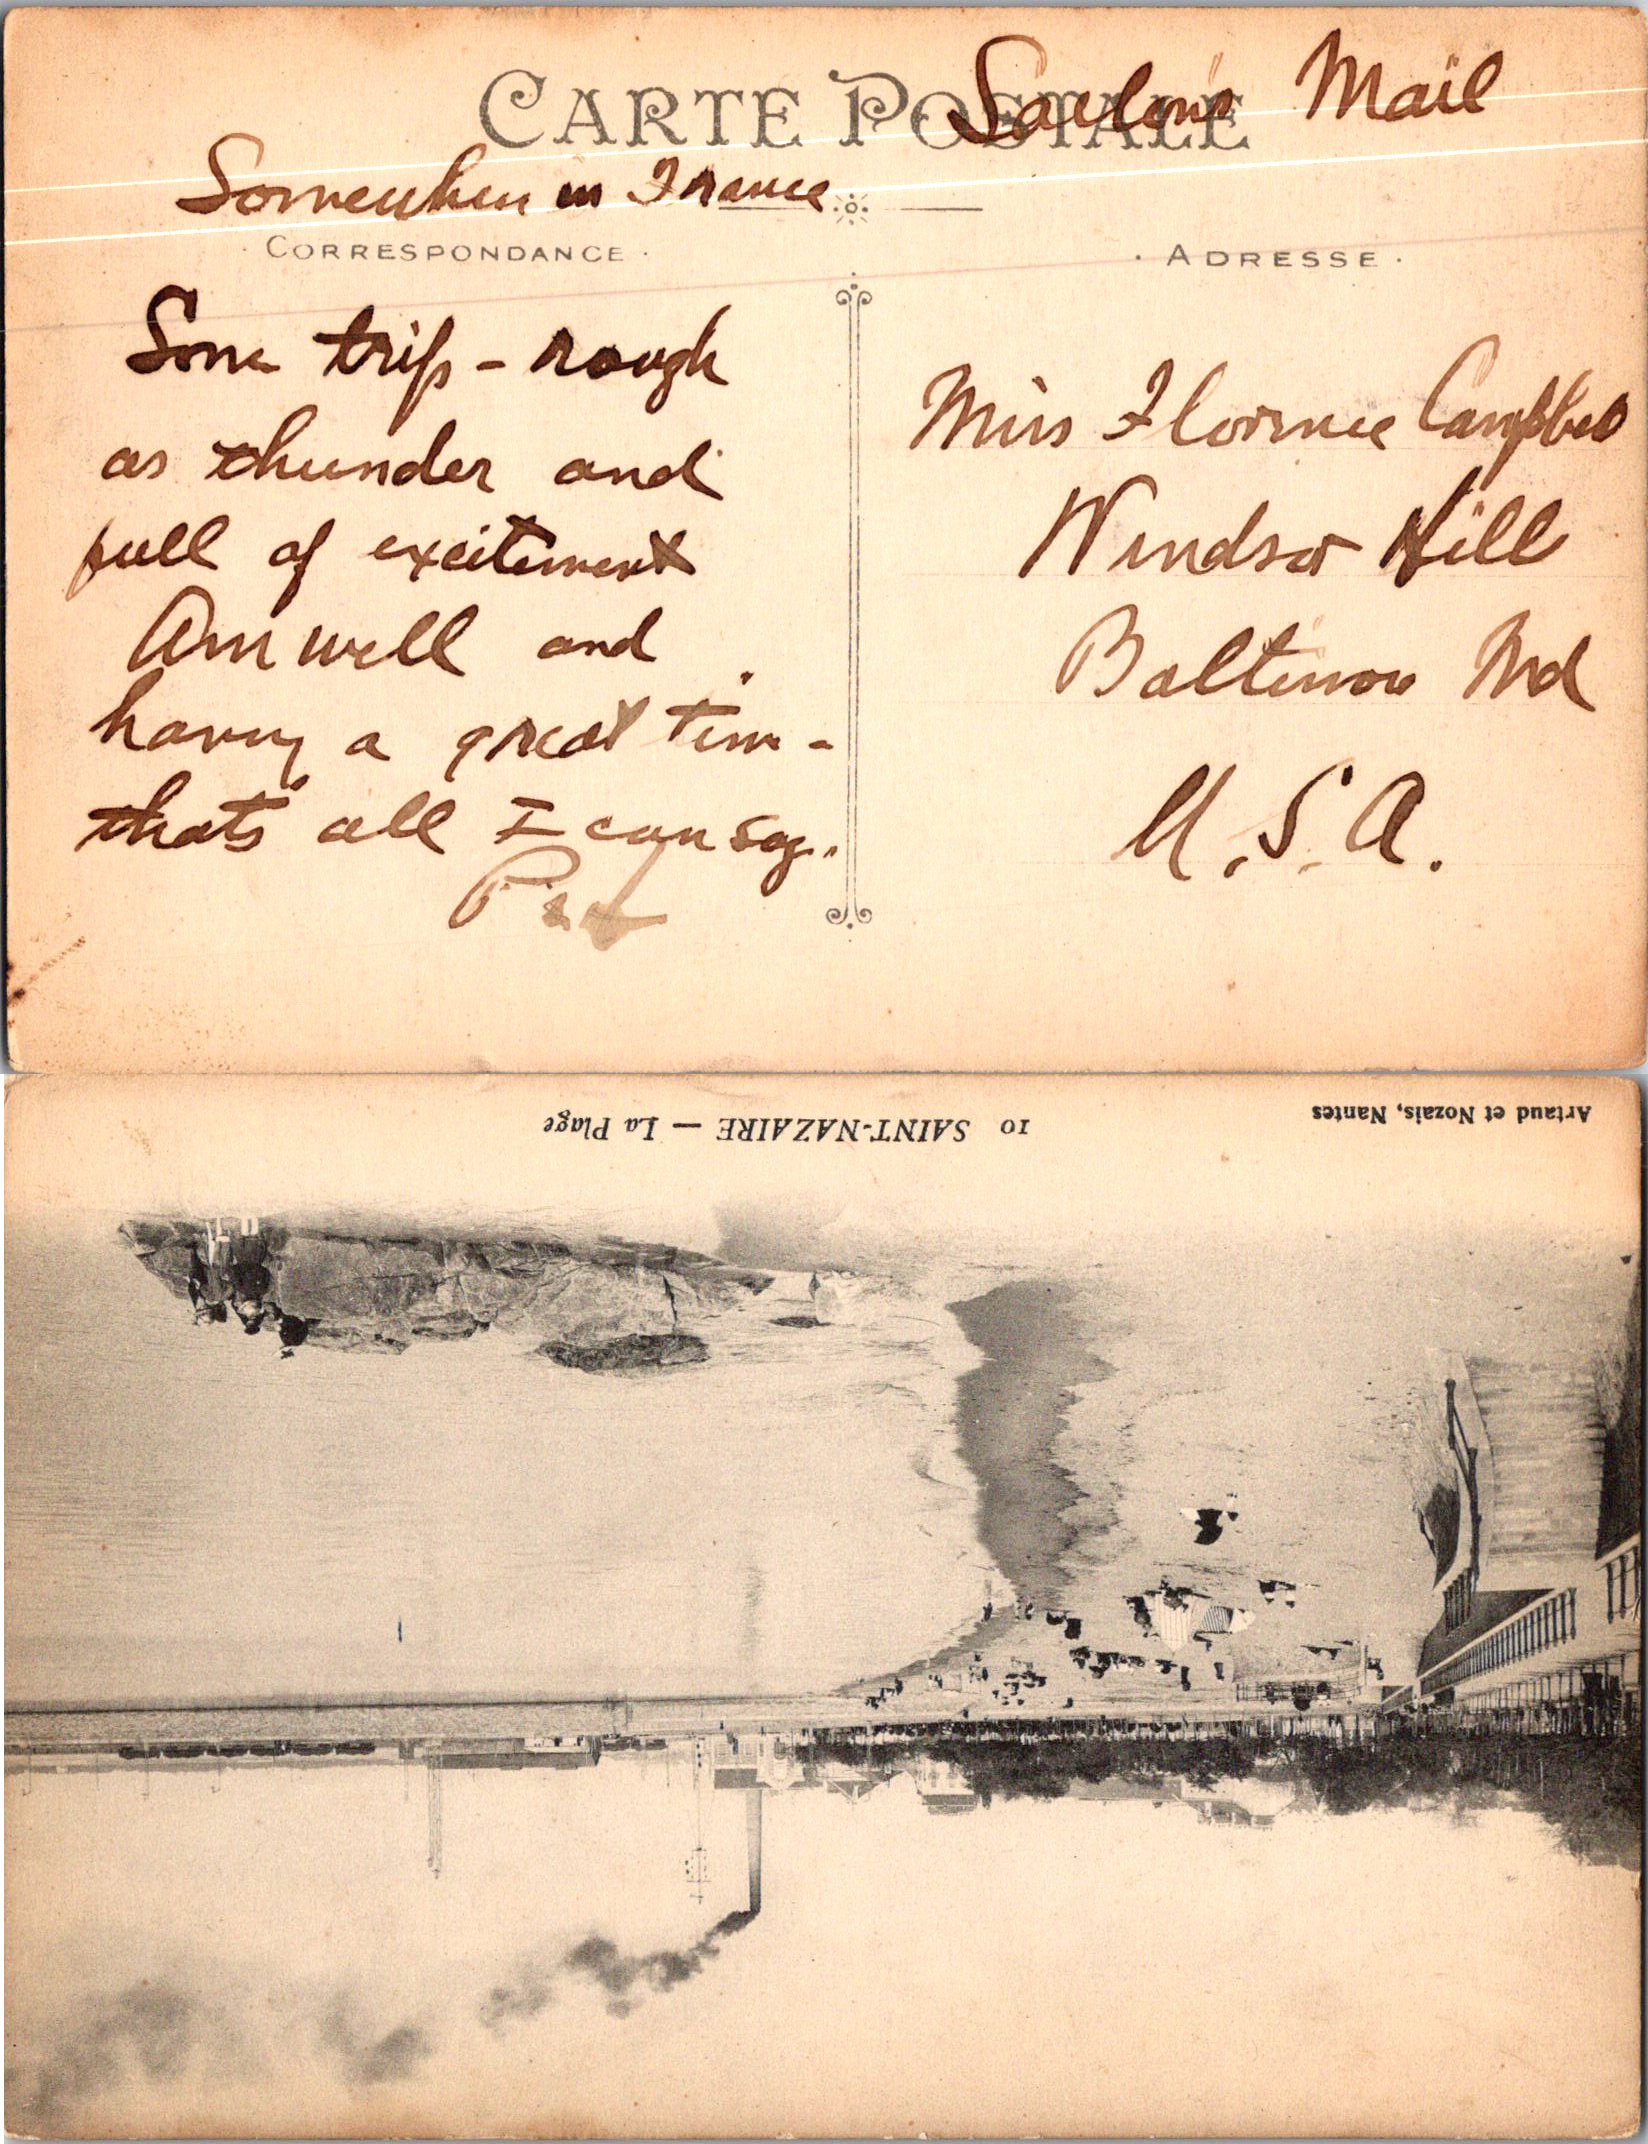 CARTE POSTALE
Sailors Mail
Somewhere in France
CORRESPONDANCE
ADRESSE
Some trip - rough
as thunder and
full of excitement
Am well and
having a great time -
thats all I can say.
Miss Florence Campbell
Windsor Hill
Baltimore Md
U.S.A.
10 SAINT-NAZAIRE — La Plage
Artaud et Nozais, Nantes